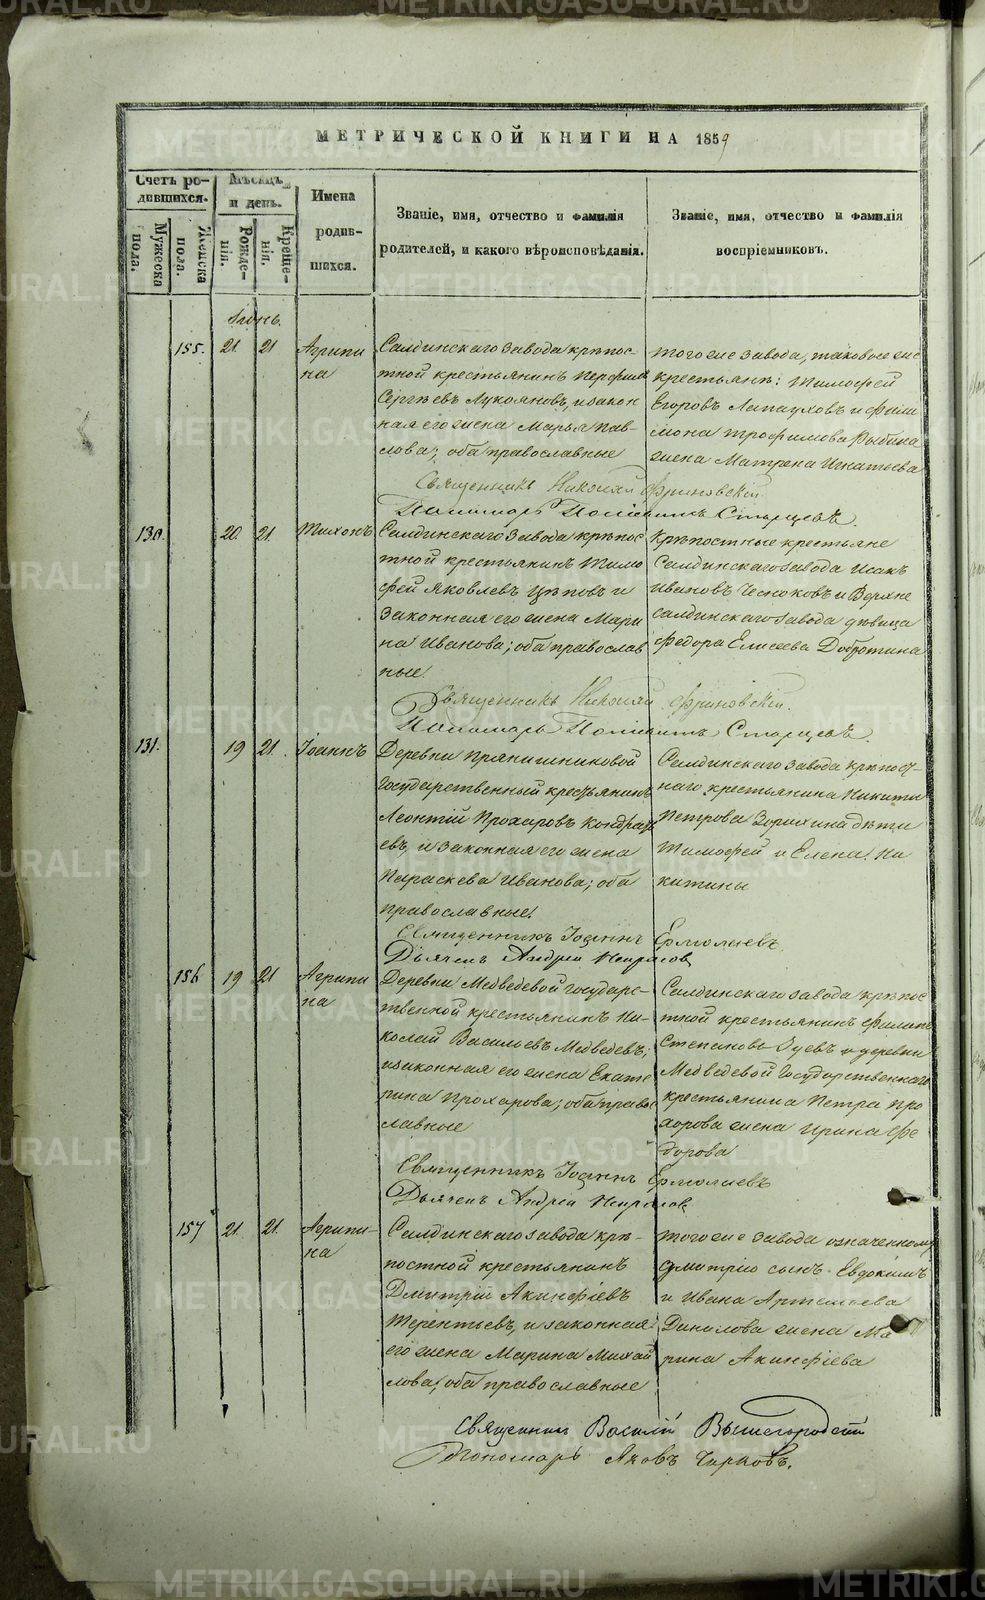 МЕТРИЧЕСКОЙ КНИГИ НА 1859
Счетъ ро-
дившихся.
Мужеска
пола.
Женска
пола.
Мѣсяцъ
и день.
Рожде-
нія.
Креще-
нія.
Имена
родив-
шихся.
Званіе, имя, отчество и фамилія
родителей, и какого вѣроисповѣданія.
Званіе, имя, отчество и фамилія
воспріемниковъ.
Іюнь.
155. 21 21 Агрипи
на
Салдинскаго завода крѣпос-
тной крестьянинъ Перфилъ
Сергѣевъ Лукояновъ, и закон
ная его жена Марья Пав-
лова; оба православные
тогоже завода, таковые же
крестьяне: Тимофей
Егоровъ Лапауховъ и Фили
мона Трофимова Рыбина
жена Матрена Игнатьева
Священникъ Николай Фриновскій
Пономарь Старцевъ.
130. 20 21. Тихонъ
Салдинскаго завода крѣпос
тной крестьянинъ Тимо
фей Яковлевъ Цѣповъ и
законная его жена Мари
на Иванова; оба православ
ные.
Крѣпостные крестьяне
Салдинскаго завода Исакъ
Ивановъ Чесноковъ и Верхне
салдинскаго завода дѣвица
Федора Елисеева Добротина
Священникъ Николай Фриновскій.
Пономарь Старцевъ.
131. 19 21. Іоаннъ
Деревни Прянишниковой
государственный крестьянинъ
Леонтій Прохоровъ Кондрать
евъ, и законная его жена
Параскева Иванова; оба
православные.
Салдинскаго завода крѣпост-
наго крестьянина Никиты
Петрова Зорихина дѣти
Тимофей и Елена Ни
китины
Священникъ Іоаннъ Ермолаевъ
Дьячекъ Андрей Некрасовъ
156 19 21 Агрипи
на
Деревни Медведевой государс-
твенной крестьянинъ Ни-
колай Васильевъ Медведевъ,
и законная его жена Екате
рина Прохорова; оба право
славные
Салдинскаго завода крѣпос
тной крестьянинъ Филипъ
Степановъ Зуевъ и деревни
Медведевой государственнаго
крестьянина Петра Про
хорова жена Ирина Фе
дорова
Священникъ Іоаннъ Ермолаевъ
Дьячекъ Андрей Некрасовъ
157 21. 21. Агрипи-
на
Салдинскаго завода крѣ-
постной крестьянинъ
Дмитрій Акинфіевъ
Терентьевъ, и законная
его жена Марина Михай
лова; оба православные
тогоже завода означенному
Дмитрію сынъ Евдокимъ
и Ивана Артемьева
Данилова жена Ма
рина Акинфіева
Священникъ Василій Вышегородскій
Пономарь Яковъ Чирковъ.
METRIKI.GASO-URAL.RU